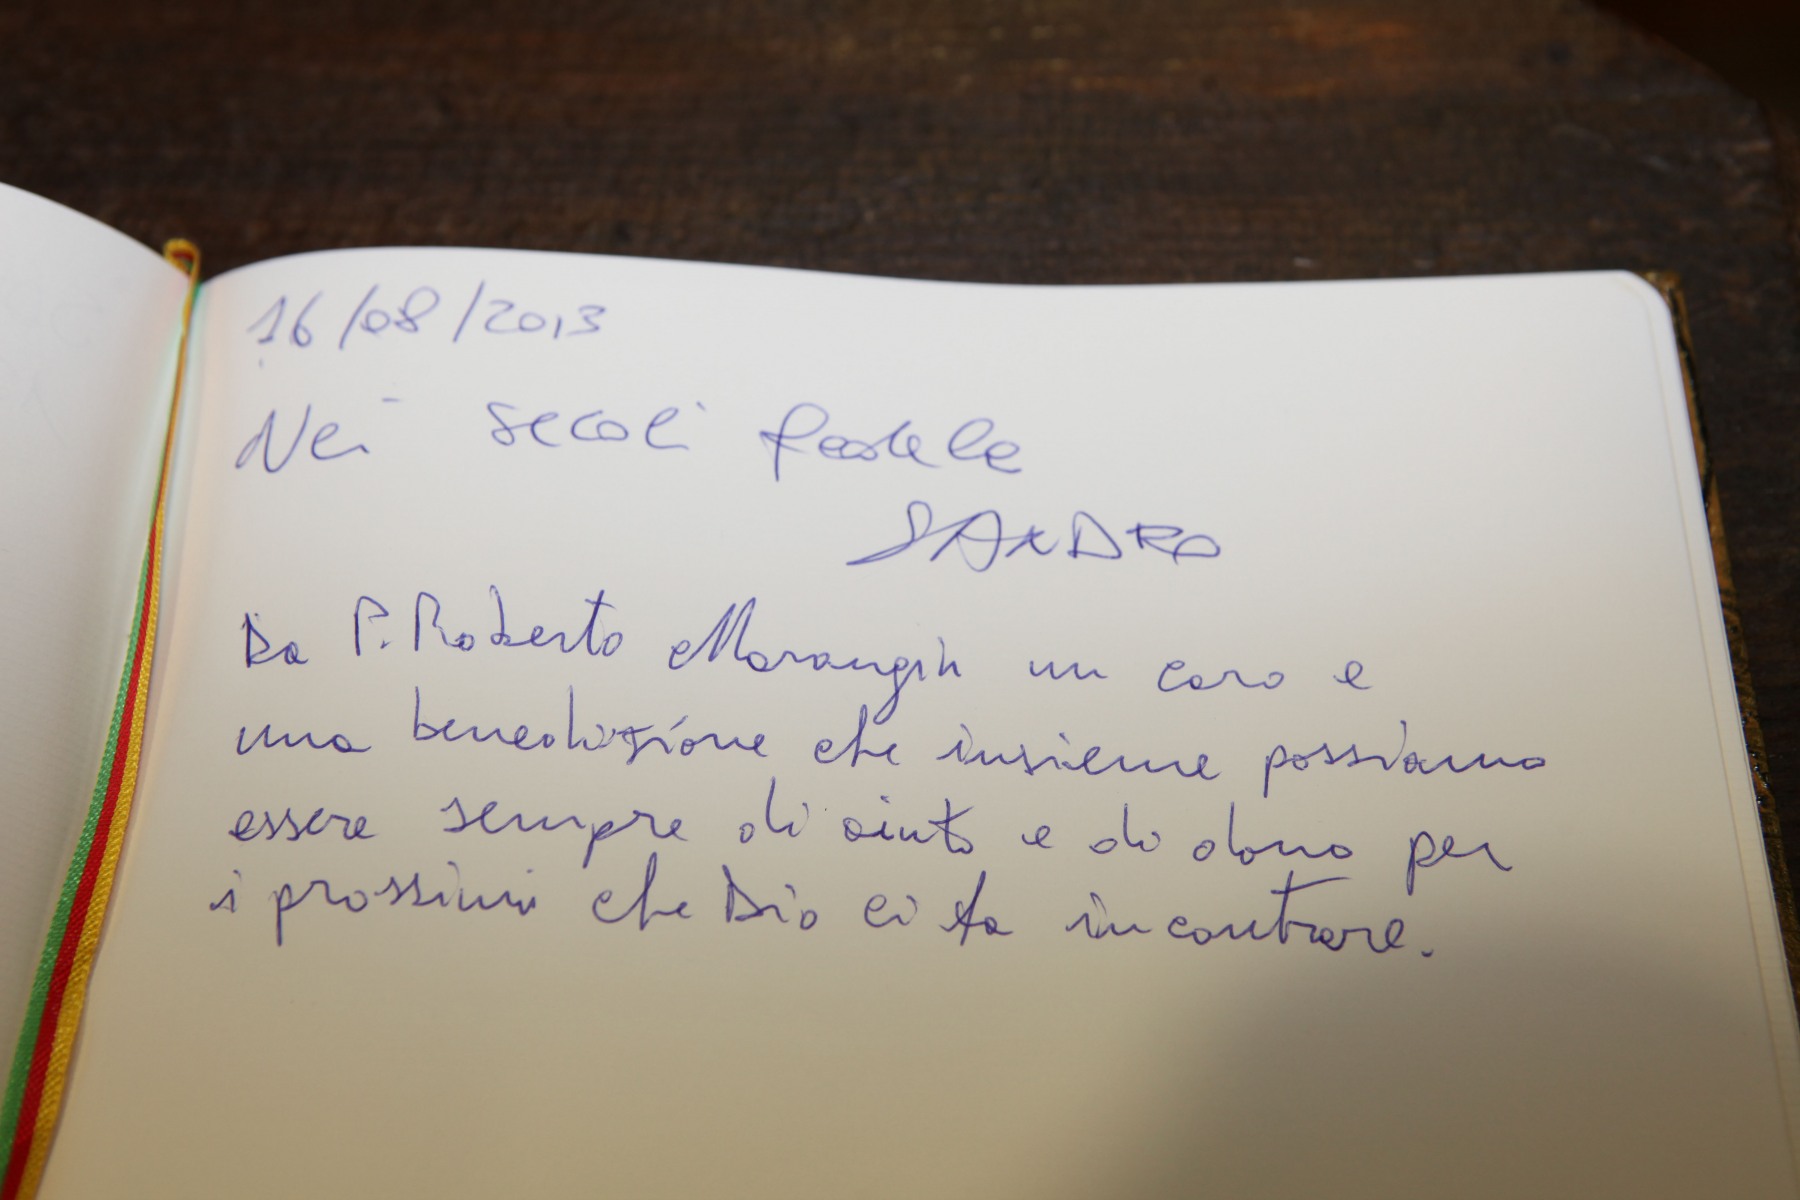 16/08/2013
Nei secoli fedele
SANDRO
Da P. Roberto Marangin un caro e
una benedizione che insieme possiamo
essere sempre di aiuto e di dono per
i prossimi che Dio ci fa incontrare.